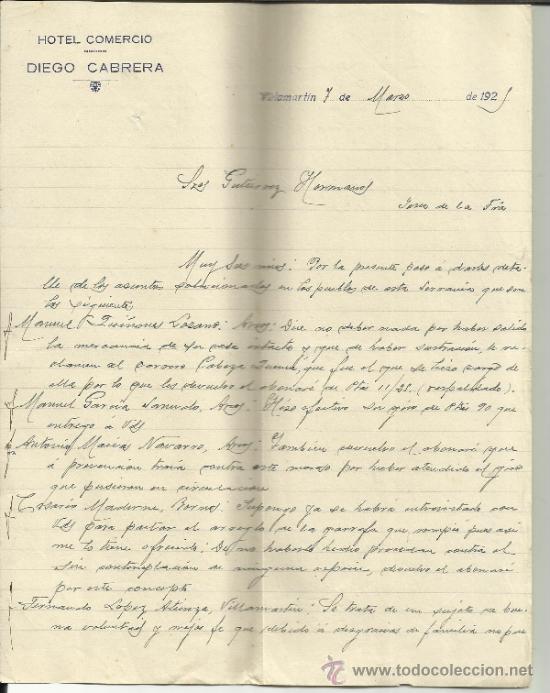 HOTEL COMERCIO
DIEGO CABRERA
Villamartín 7 de Marzo de 192
Sres Gutierrez Hermanos
de la Fra
Muy Sres mios: Por la presente paso á darles deta-
lle de los asuntos solucionados en los pueblos de esta Serrania que son
los siguientes
Manuel Quiñones Lozano: Arcos: Dice no deber nada por haber salido
la mercancia de su peso exacto y que de haber sustracion, le re-
clamen al cosario Cabeza que fue el que se hizo cargo de
ella por lo que les devuelvo el abonaré de Ptas 11/25. (respaldado).
Manuel Garcia Arcos: Hizo efectivo Su giro de Ptas 90 que
entregó a Vds
Antonio Macias Navarro, Arcos: Tambien devuelvo el abonaré que
a prevencion traia contra este moroso por haber atendido el giro
que pusieron en circulacion
Rosario Bornos: Supongo ya se habrá entrevistado con
Vds para pactar el arreglo de la garrafa que rompió pues asi
me lo tiene ofrecido: De no haberlo hecho procedan contra él
sin contemplacion de ninguna especie, devuelvo el abonaré
por este concepto
Fernando Lopez Atienza, Villamartin: Se trata de un sujeto de bue-
na voluntad y mejor fe que debido á desgracias de familia no pue
www.todocoleccion.net